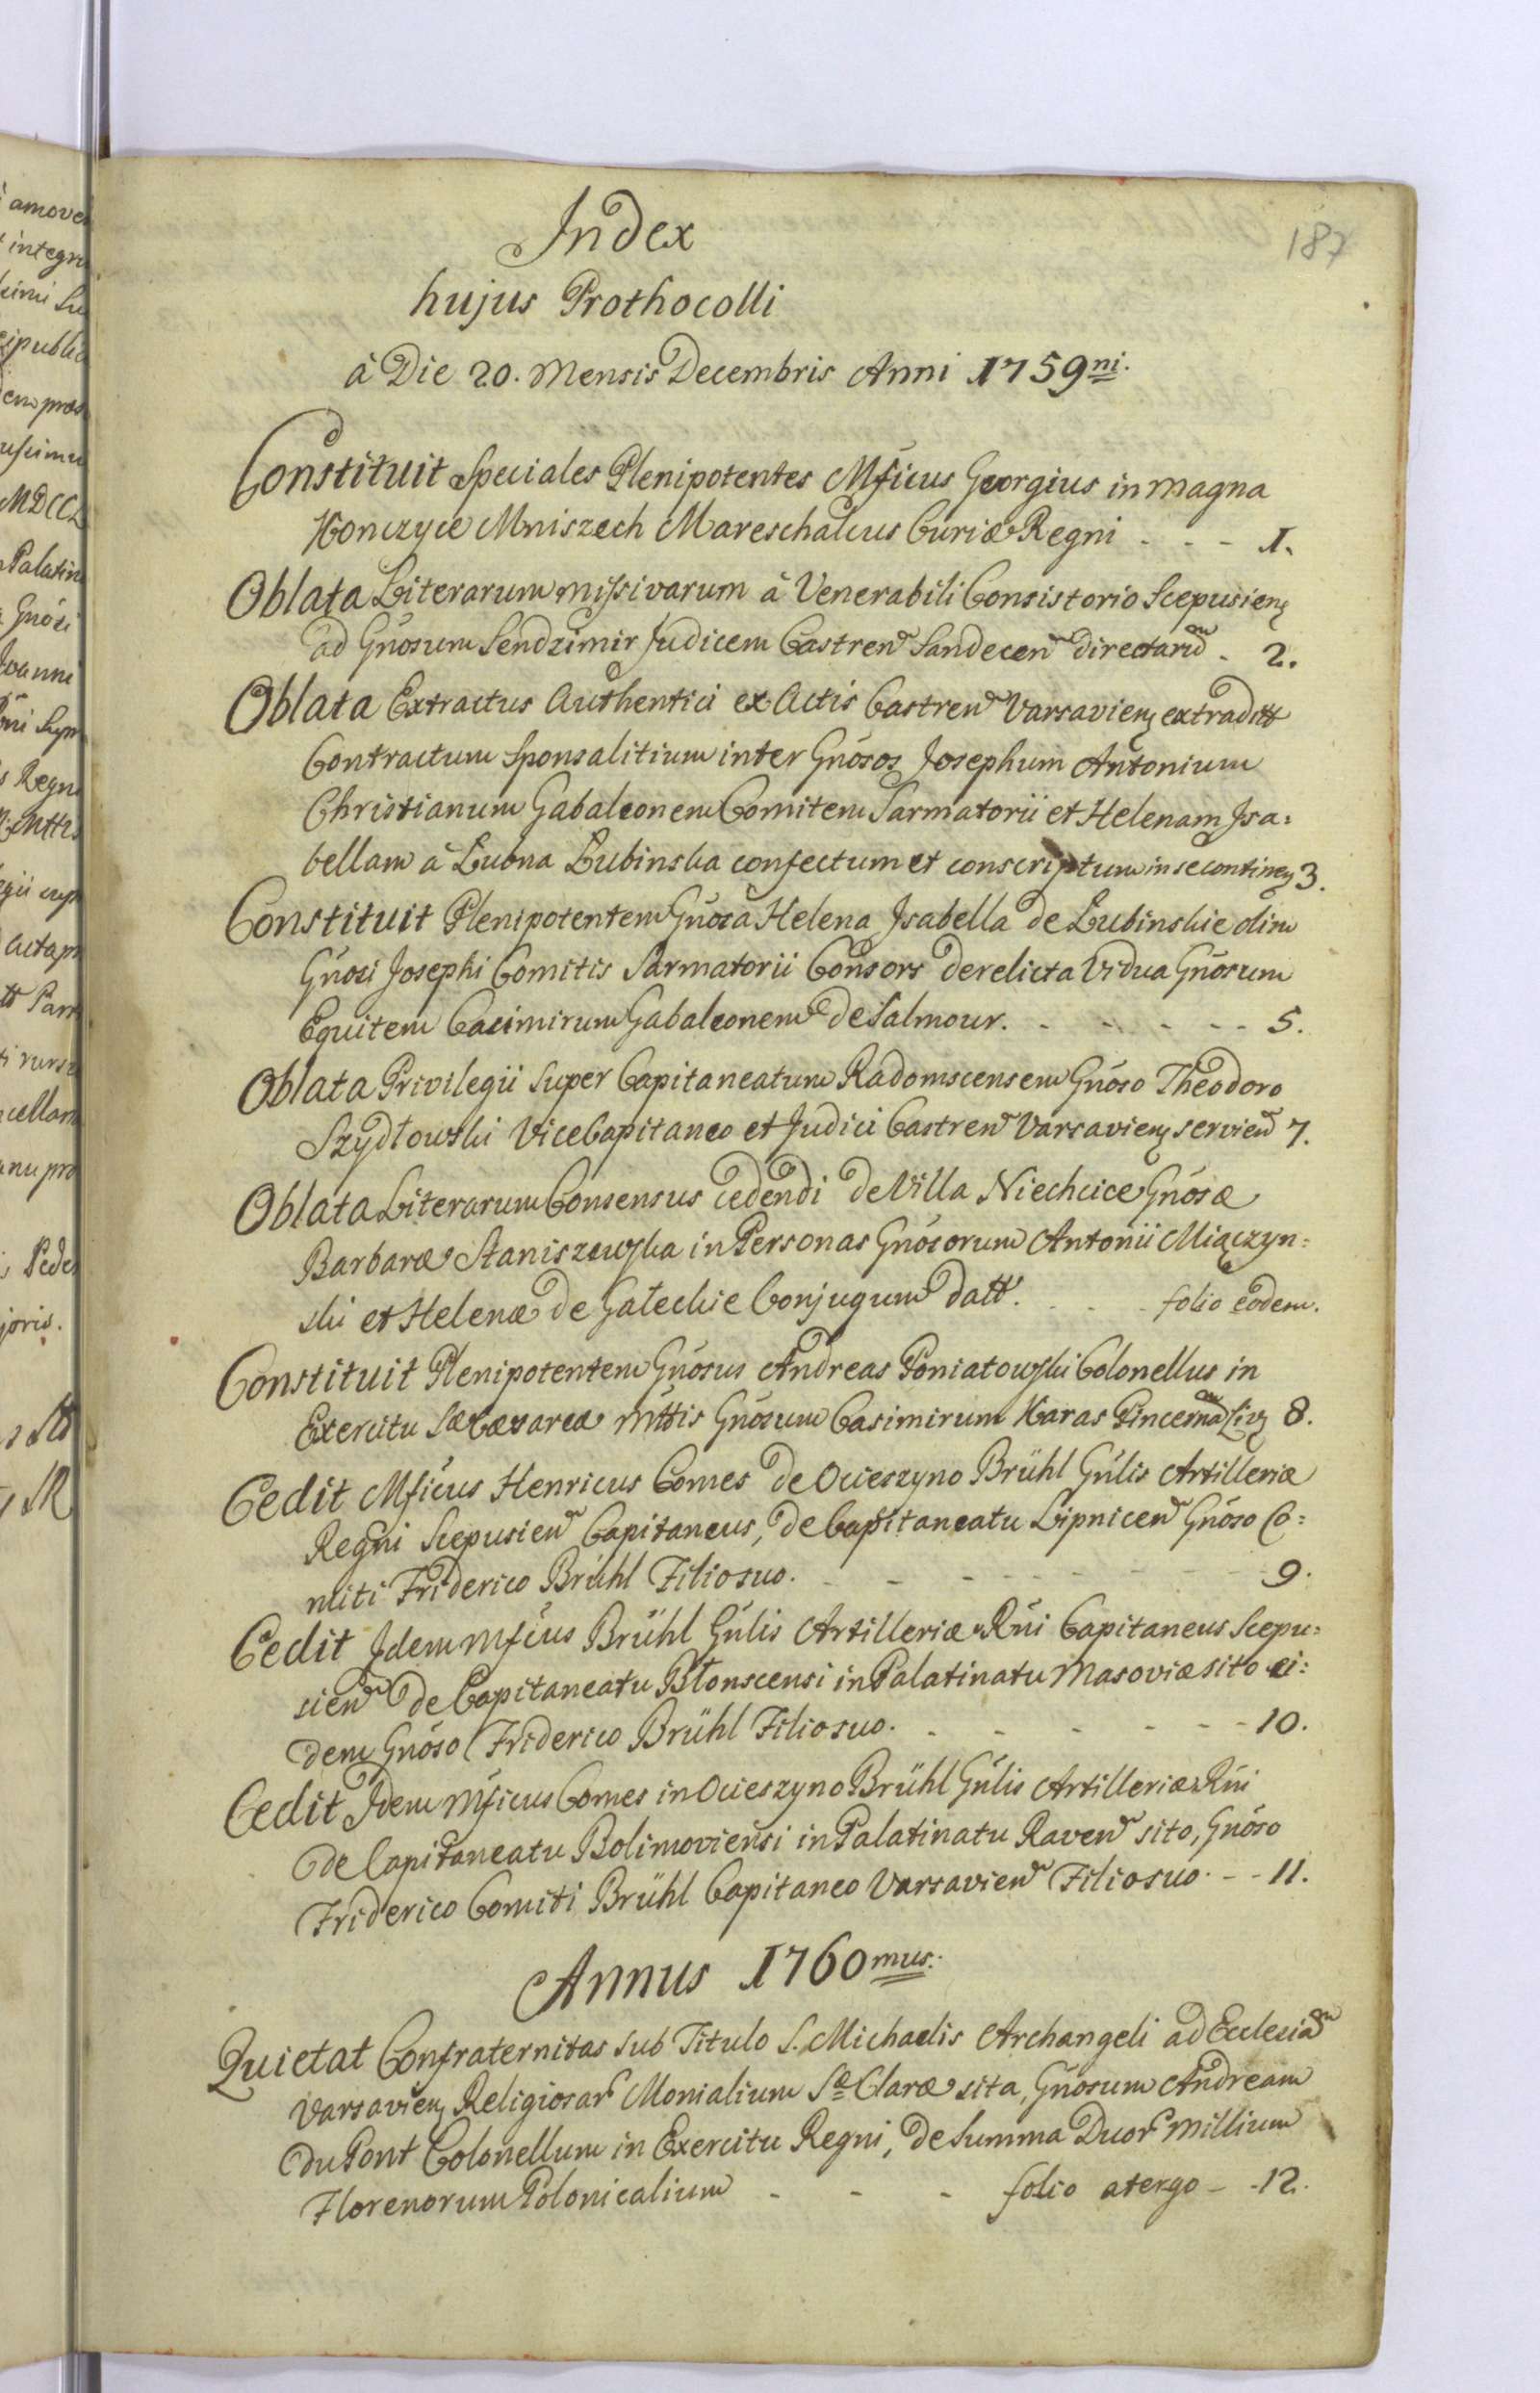 187
Index
hujus Prothocolli
à Die 20. Mensis Decembris Anni 1759ni.
Constituit Speciales Plenipotentes Mficus Georgius in magna
Konczyce Mniszech Mareschalcus Curiæ Regni - - - 1.
Oblata Literarum missivarum à Venerabili Consistorio Scepusien
ad Gnosum Sendzimir Judicem Castren Sandecen directaru - 2.
Oblata Extractus Authentici ex Actis Castren Varsavien extraditt
Contractum Sponsalitium inter Gnosos Josephum Antonium
Christianum Gabaleonem Comitem Sarmatorii et Helenam Isa=
bellam à Lubna Lubinska confectum et conscriptum in se continen 3.
Constituit Plenipotentem Gnosa Helena Isabella de Lubinskie olim
Gnosi Josephi Comitis Sarmatorii Consors derelicta Vidua Gnosum
Equitem Casimirum Gabaleonem de Salmour. - - - - - 5.
Oblata Privilegii super Capitaneatum Radomscensem Gnoso Theodoro
Szydłowski ViceCapitaneo et Judici Castren Varsavien servien 7.
Oblata Literarum Consensus cedendi de Villa Niechcice Gnosæ
Barbaræ Staniszewska in Personas Gnosorum Antonii Miączyn=
ski et Helenæ de Gałeckie Conjugum datt. - - - folio eodem.
Constituit Plenipotentem Gnosus Andreas Poniatowski Colonellus in
Exercitu Sæ Cæsareæ Mttis Gnosum Casimirum Karas Pincerna Liv 8.
Cedit Mficus Henricus Comes de Ocieszyno Brühl Gnlis Artilleriæ
Regni Scepusien Capitaneus, de Capitaneatu Lipnicen Gnoso Co=
miti Friderico Brühl Filio suo. - - - - - - - 9.
Cedit Idem Mficus Brühl Gnlis Artilleriæ Rni Capitaneus Scepu=
sien de Capitaneatu Błonscensi in Palatinatu Masoviæ sito ei=
dem Gnoso Friderico Brühl Filio suo. - - - - - - 10.
Cedit Idem Mficus Comes in Ocieszyno Brühl Gnlis Artilleriæ Rni
de Capitaneatu Bolimoviensi in Palatinatu Raven sito, Gnoso
Friderico Comiti Brühl Capitaneo Varsavien Filio suo. - - 11.
Annus 1760mus.
Quietat Confraternitas sub Titulo S. Michaelis Archangeli ad Ecclesia
Varsavien Religiosar Monialium Sæ Claræ sita, Gnosum Andream
du Pont Colonellum in Exercitu Regni, de Summa Duor millium
Florenorum Polonicalium - - - folio atergo - - 12.